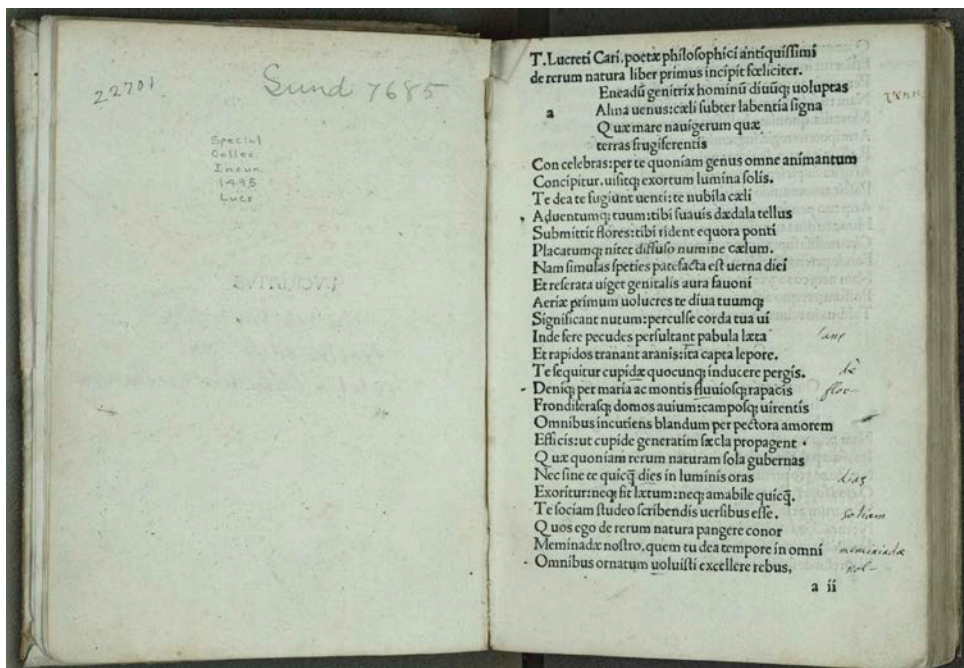 22701
Sund 7685
Special
Collec.
Incun
1495
Lucr
T. Lucreti Cari. poetæ philoſophici antiquiſſimi
de rerum natura liber primus incipit fœliciter.
Eneadū genitrix hominū diuūq; uoluptas
a
Alma uenus: cæli ſubter labentia ſigna
Quæ mare nauigerum quæ
terras frugiferentis
Con celebras: per te quoniam genus omne animantum
Concipitur. uiſitq; exortum lumina ſolis.
Te dea te fugiunt uenti: te nubila cæli
Aduentumq; tuum: tibi ſuauis dædala tellus
Submittit flores: tibi rident equora ponti
Placatumq; nitet diffuſo numine cælum.
Nam ſimulas ſpeties patefacta eſt uerna diei
Et reſerata uiget genitalis aura fauoni
Aeriæ primum uolucres te diua tuumq;
Significant nutum: perculſe corda tua ui
Inde fere pecudes perſultant pabula læta
Et rapidos tranant aranis: ita capta lepore.
Te ſequitur cupidæ quocunq; inducere pergis.
Deniq; per maria ac montis fluuioſq; rapacis
Frondiferaſq; domos auium: campoſq; uirentis
Omnibus incutiens blandum per pectora amorem
Efficis: ut cupide generatim ſæcla propagent
Quæ quoniam rerum naturam ſola gubernas
Nec ſine te quicq̄ dies in luminis oras
dias
Exoritur: neq; fit lætum: neq; amabile quicq̄.
Te ſociam ſtudeo ſcribendis uerſibus eſſe.
Quos ego de rerum natura pangere conor
Meminadæ noſtro. quem tu dea tempore in omni
meminiadæ
Omnibus ornatum uoluiſti excellere rebus,
a ii